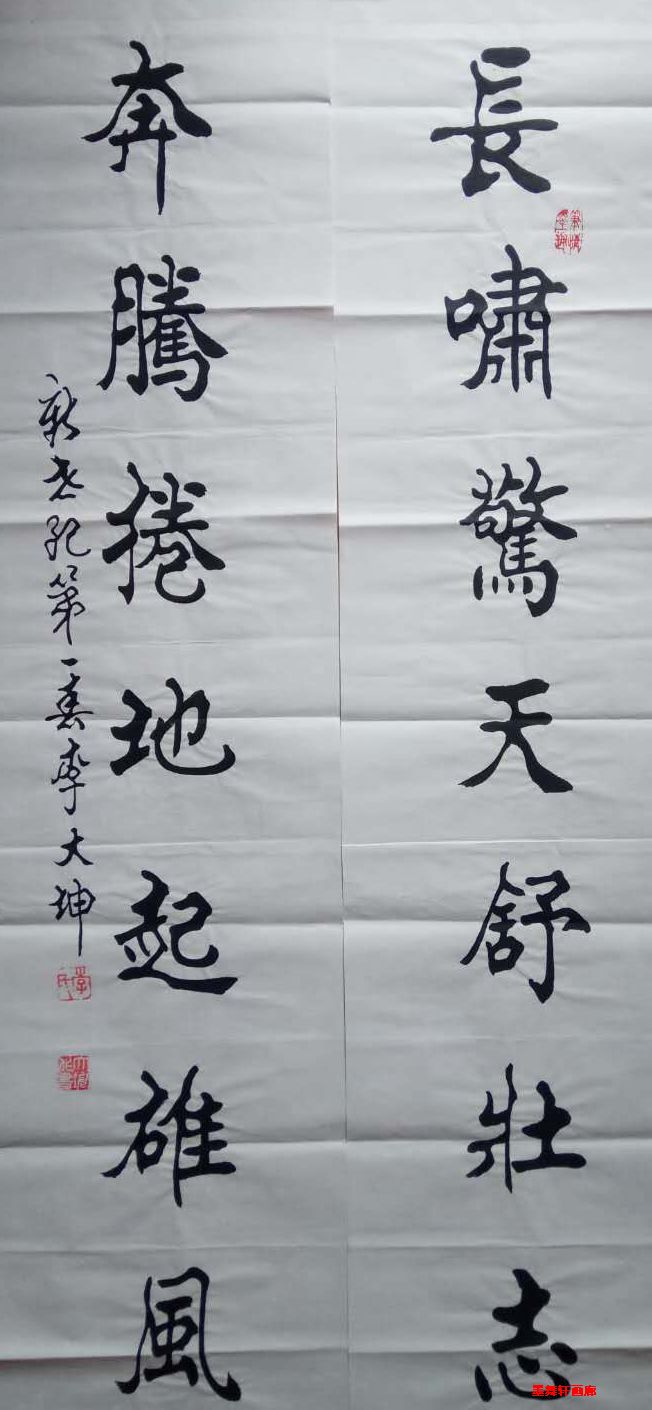 長嘯驚天舒壯志
奔騰捲地起雄風
新世紀第一春李大坤
墨舞轩画廊